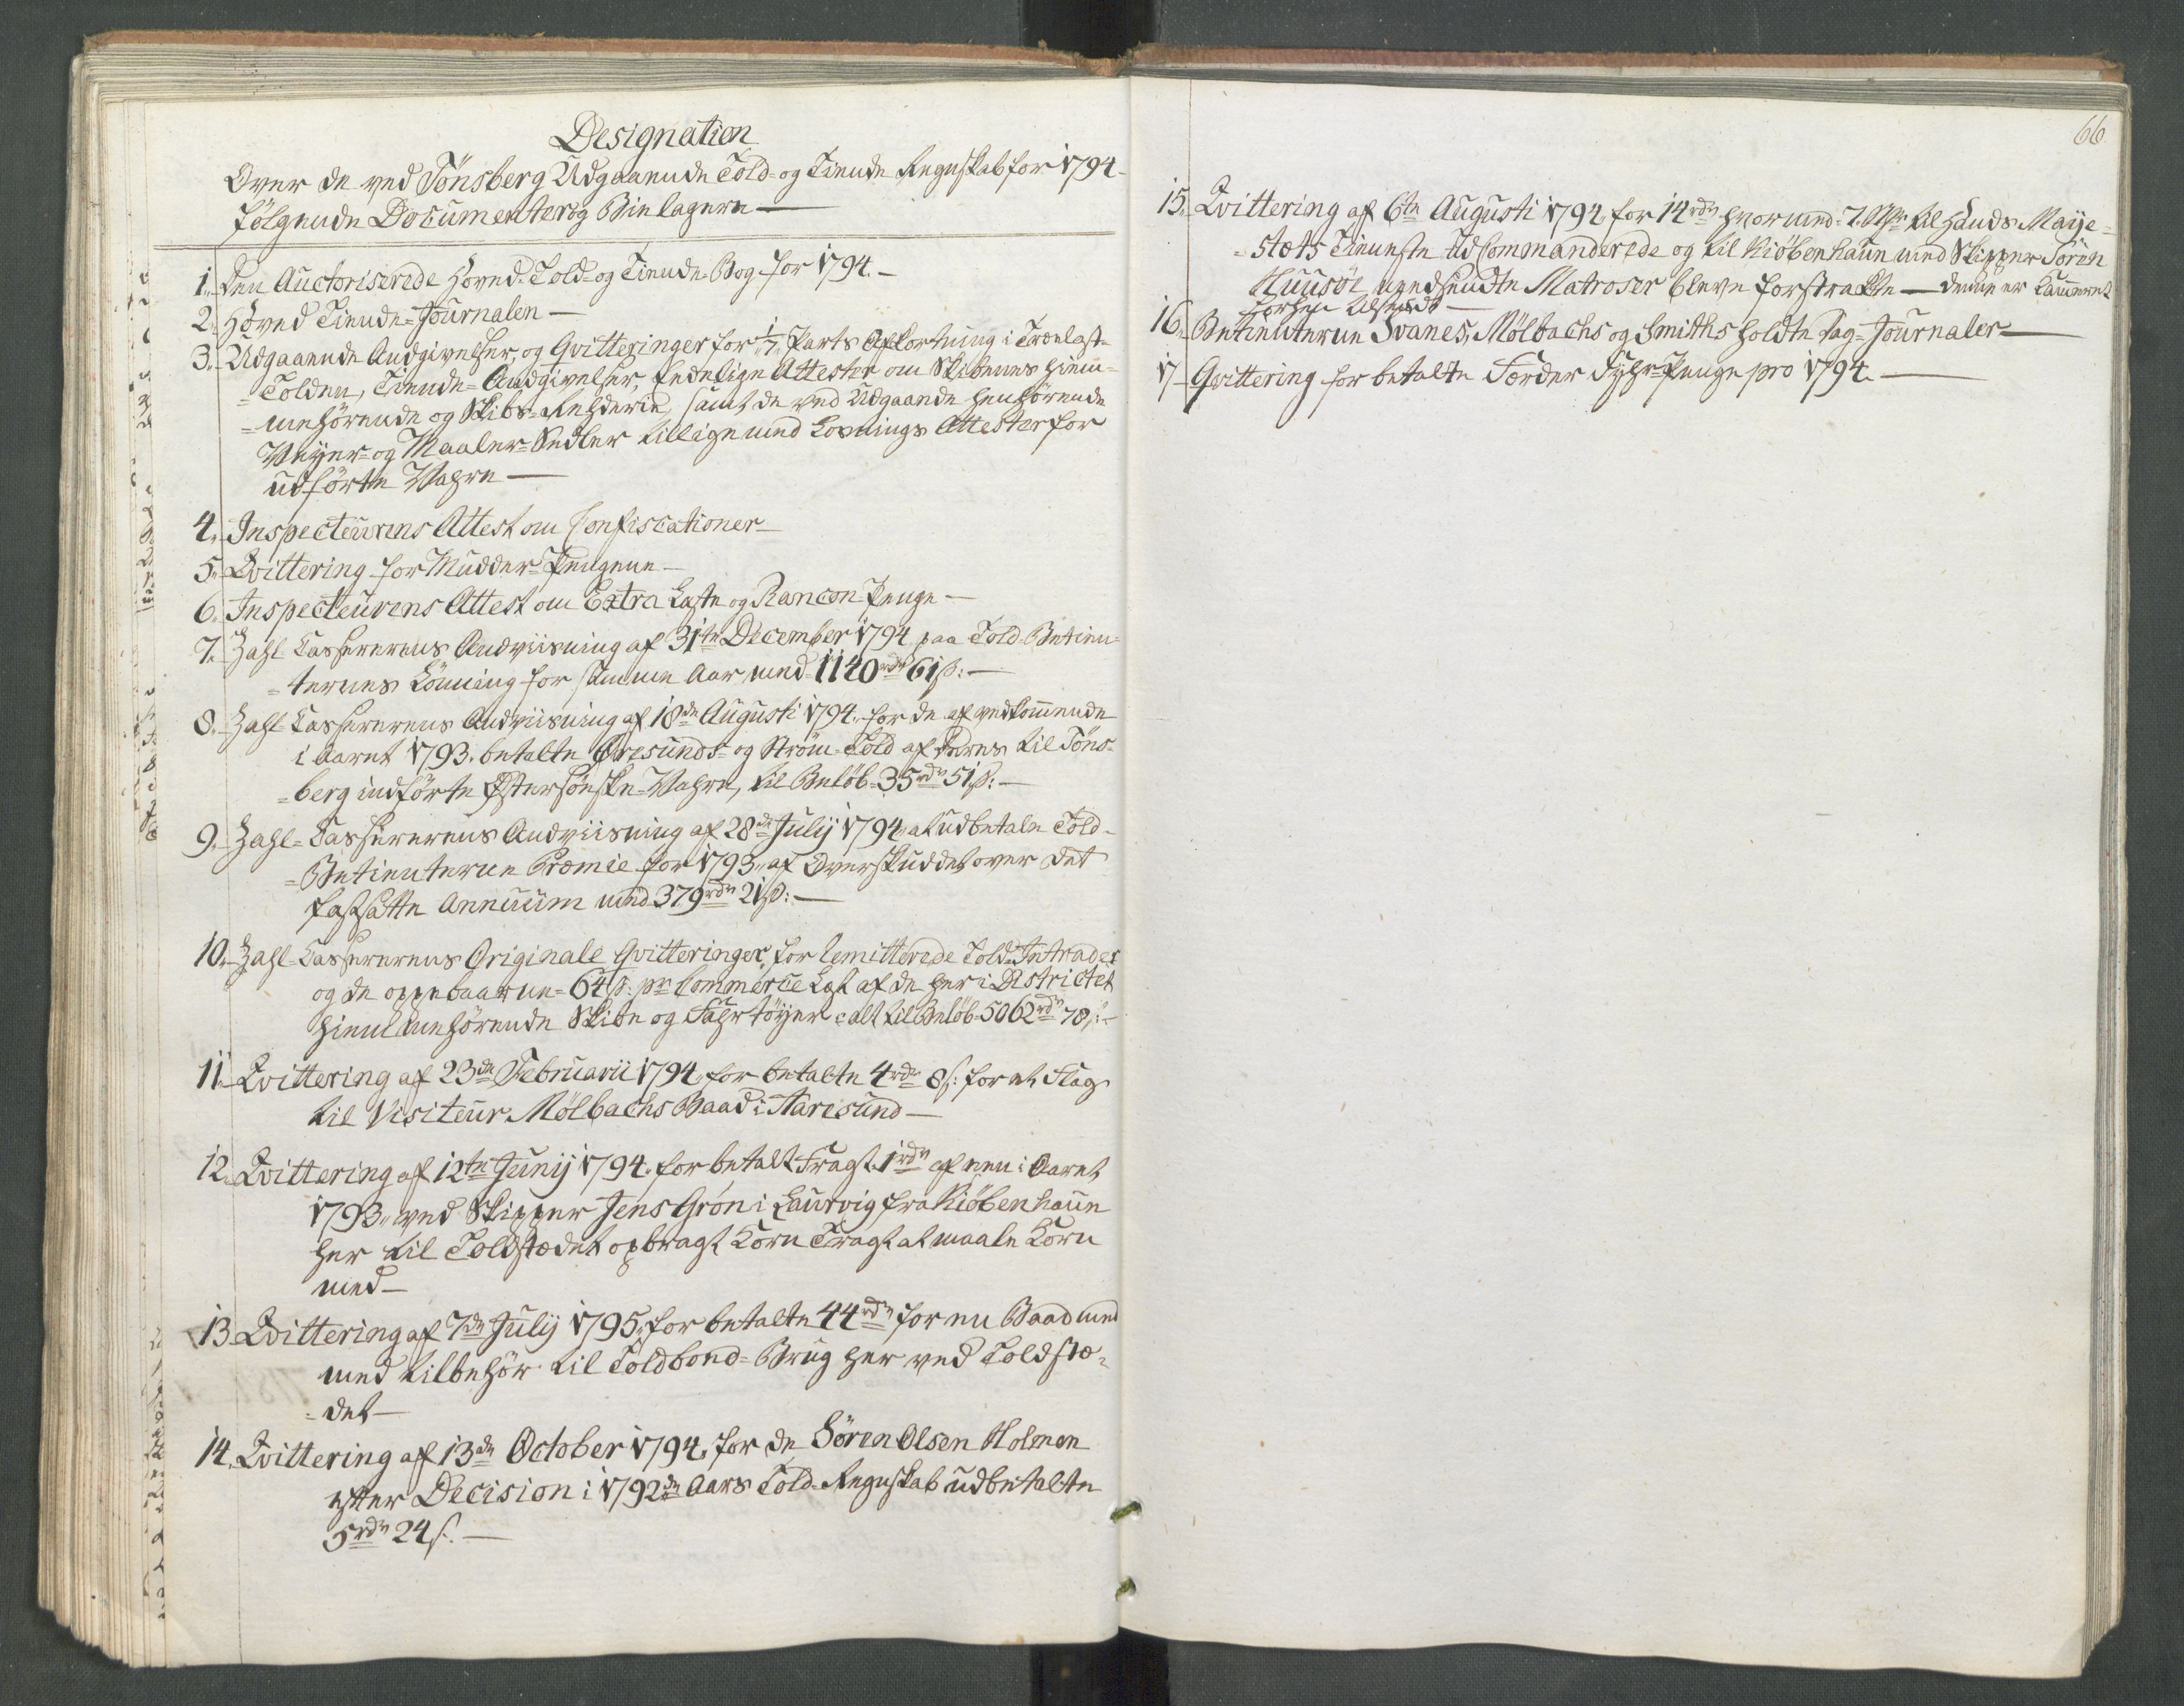 Designation
Over de ved Tönsberg Udgaaende Told- og Tiende Regnskab for 1794
følgende Documenter og Bielagere —
1. Den Auctoriserede Hoved-Told- og Tiende-Bog for 1794. —
2. Hoved Tiende-Journalen —
3. Udgaaende Angivelser, og Qvitteringer for 1/7 Parts Afkortning i Trælast-
= Tolden, Tiende-Angivelser, Edelige Attester om Skibenes Hiem-
= mehörende og Skibs-Rehderie, samt de ved Udgaaende henhörende
Veyer- og Maaler-Sedler tillige med Losnings Attester for
udförte Vahre —
4. Inspecteurens Attest om Confiscationer —
5. Qvittering for Mudder-Pengene —
6. Inspecteurens Attest om Extra Laste og Rancon-Penge —
7. Zahl-Casserernes Anviisning af 31te December 1794 paa Told-Betien-
= ternes Lönning for samme Aar med 1140 rdr 61 ß: —
8. Zahl-Casserernes Anviisning af 18de Augusti 1794. for de af vedkommende
i Aaret 1793. betalte Öresunds- og Ström-Told af deres til Töns-
= berg indförte Östersöeske-Vahre, til Belöb 35 rdr 51 ß: —
9. Zahl-Casserernes Anviisning af 28de Julij 1794 at udbetale Told-
= Betienterne Præmie for 1793 af Overskuddet over det
fastsatte Annuum med 379 rdr 21 ß: —
10. Zahl-Casserernes Originale Qvitteringer for remitterede Told-Intrader
og de oppebaarne 64 ß: pr Commerce Læst af de her i Districtet
hiemmehörende Skibe og Fahrtöyer alt til Belöb 5062 rdr 78 ß: —
11. Qvittering af 23de Februarii 1794 for betalte 4 rdr 8 ß: for et Flag
til Visiteur Mölbachs Baad i Haresund —
12. Qvittering af 12te Junij 1794. for betalt Fragt 1 rdr af een i Aaret
1793 med Skipper Jens Grön i Laurvig fra Kiöbenhaun
her til Toldstædet opbragt Korn Tragt at maale Korn
med —
13. Qvittering af 7de Julij 1795 for betalte 44 rdr for en Baad med
med tilbehör til Toldbond-Brug her ved Toldstæ-
= det —
14. Qvittering af 13de October 1794, for de Sören Olsen Holmen
efter Decision i 1792de Aars Told-Regnskab udbetalte
5 rdr 24 ß. —
66
15. Qvittering af 6te Augusti 1794, for 14 rdr hvormed 7. til Hands Maije-
= stæts Tieneste Udcommanderede og til Kiöbenhaun med Skipper Sören
Huusöe nedsendte Matroser bleve forstrakte — denne er
forhen
16. Betienterne Svanes, Mölbachs og Smiths holdte Dag-Journaler —
17. Qvittering for betalte Færder Fyhr-Penge pro 1794. —